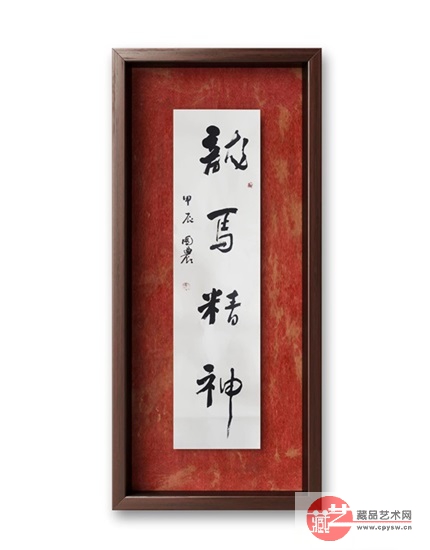 龍馬精神
甲辰 國農
藏艺
藏品艺术网
www.cpysw.cn